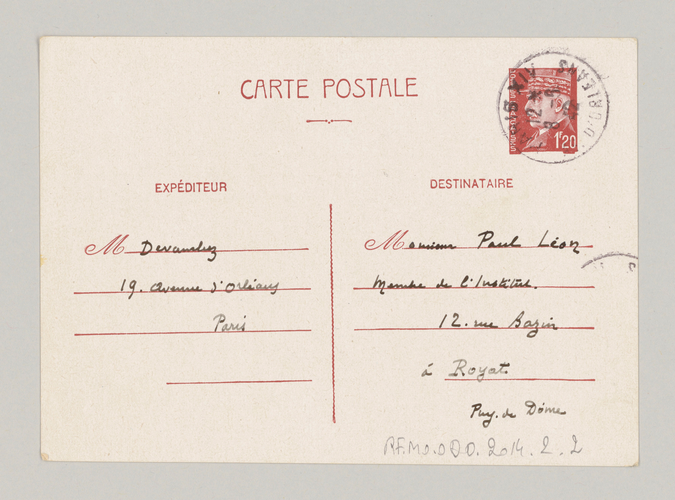 CARTE POSTALE
1F20
EXPÉDITEUR
M Devanchez
19. avenue d'Orléans
Paris
DESTINATAIRE
Monsieur Paul Léon
Membre de l'Institut.
12. rue Bazin
à Royat
Puy. de Dôme
R.F.M.O.ODO.2014.2.2